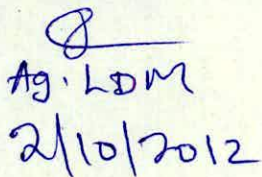 Ag. LDM
2/10/2012